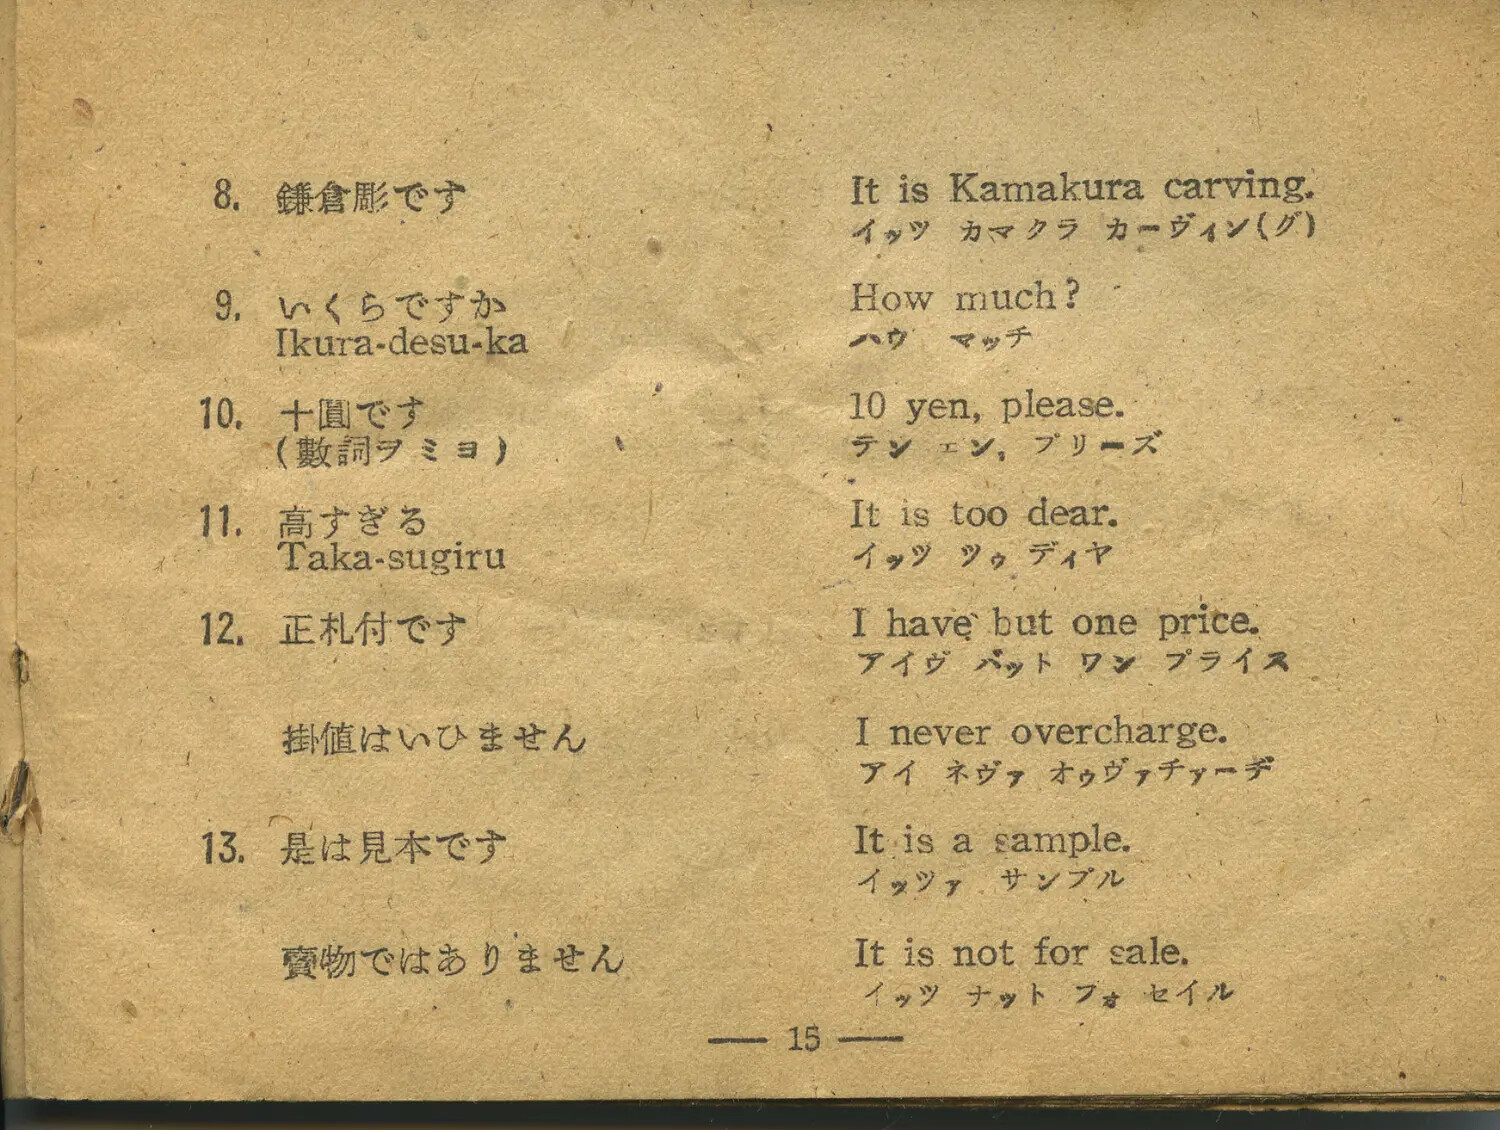 8. 鎌倉彫です
It is Kamakura carving.
イッツ カマクラ カーヴィン(グ)
9. いくらですか
How much?
Ikura-desu-ka
ハウ マッチ
10. 十圓です
10 yen, please.
(數詞ヲミヨ)
テン エン, プリーズ
11. 高すぎる
It is too dear.
Taka-sugiru
イッツ ツゥ ディヤ
12. 正札付です
I have but one price.
アイヴ バット ワン プライス
掛値はいひません
I never overcharge.
アイ ネヴァ オゥヴァチァーヂ
13. 是は見本です
It is a sample.
イッツァ サンプル
賣物ではありません
It is not for sale.
イッツ ナット フォ セイル
— 15 —